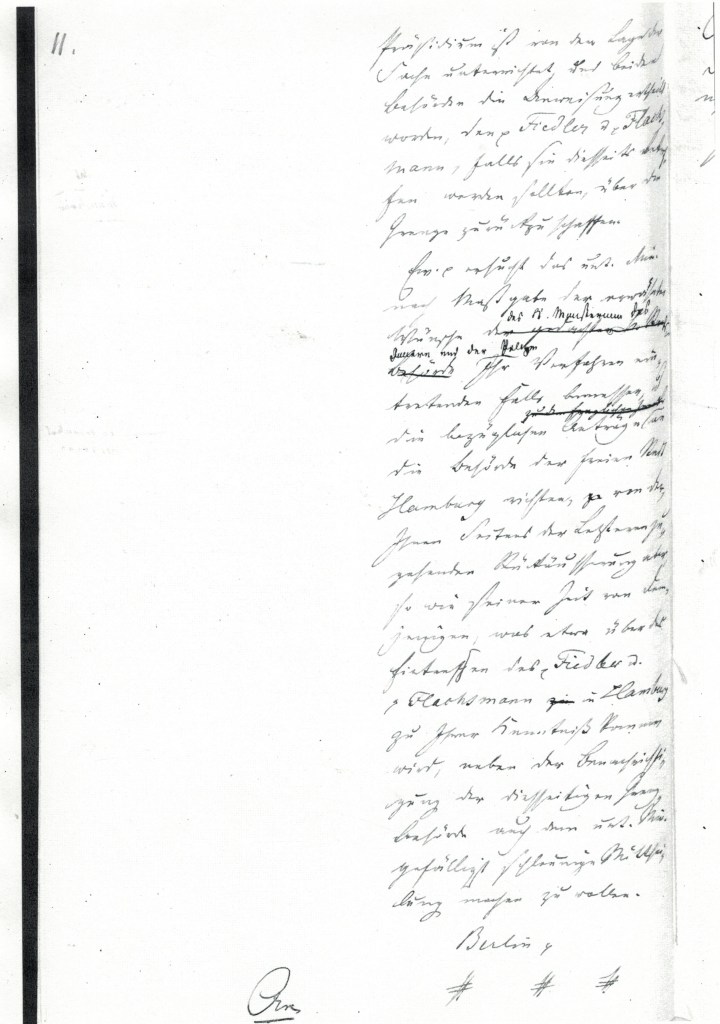 11.
Präsidium ist von der Lage der
Sache unterrichtet, und beiden
Behörden die Anweisung ertheilt
worden, den p Fiedler u. p Flachs
mann, falls sie diesseits betrof
fen werden sollten, über die
Grenze zurückzuschaffen.
Ew. p ersucht das unt. Min.
nach Maßgabe der erwähnten
des K. Ministerium des
Wünsche der
Innern und der Polizei
Behörde Ihr Verfahren ein,
tretenden Falls bemessen,
die bezüglichen Anträge an
die Behörde der freien Stadt
Hamburg richten, von der
Ihnen Seitens der Letzteren zu,
gehenden Rückäusserung aber
so wie seiner Zeit von dem,
jenigen, was etwa über das
Eintreffen des p Fiedler u.
p Flachsmann in Hamburg
zu Ihrer Kenntniß kommen
wird, neben der Benachrichti,
gung der diesseitigen Grenz,
behörde auch dem unt. Min.
gefälligst schleunige Mitthei
lung machen zu wollen.
Berlin p